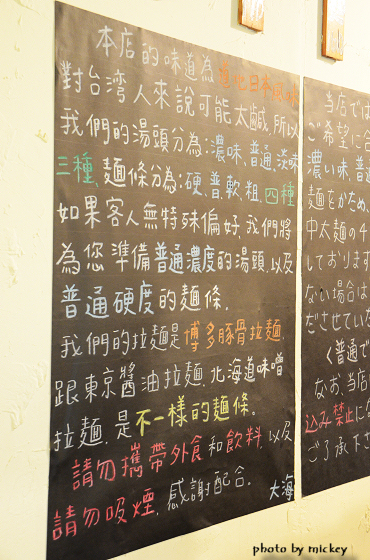 本店的味道為道地日本風味
對台灣人來說可能太鹹,所以
我們的湯頭分為:濃味、普通、淡味
三種,麵條分為:硬、普、軟、粗、四種
如果客人無特殊偏好,我們將
為您準備普通濃度的湯頭,以及
普通硬度的麵條。
我們的拉麵是博多豚骨拉麵,
跟東京醬油拉麵、北海道味噌
拉麵,是不一樣的麵條。
請勿攜帶外食和飲料,以及
請勿吸煙,感謝配合。 大海
当店では
ご希望に合
濃い味、普通
麺をかため、
中太麺の4
しております
ない場合は
ださせていた
く普通で
なお、当店
込み禁止にな
ご了承下さ
photo by mickey